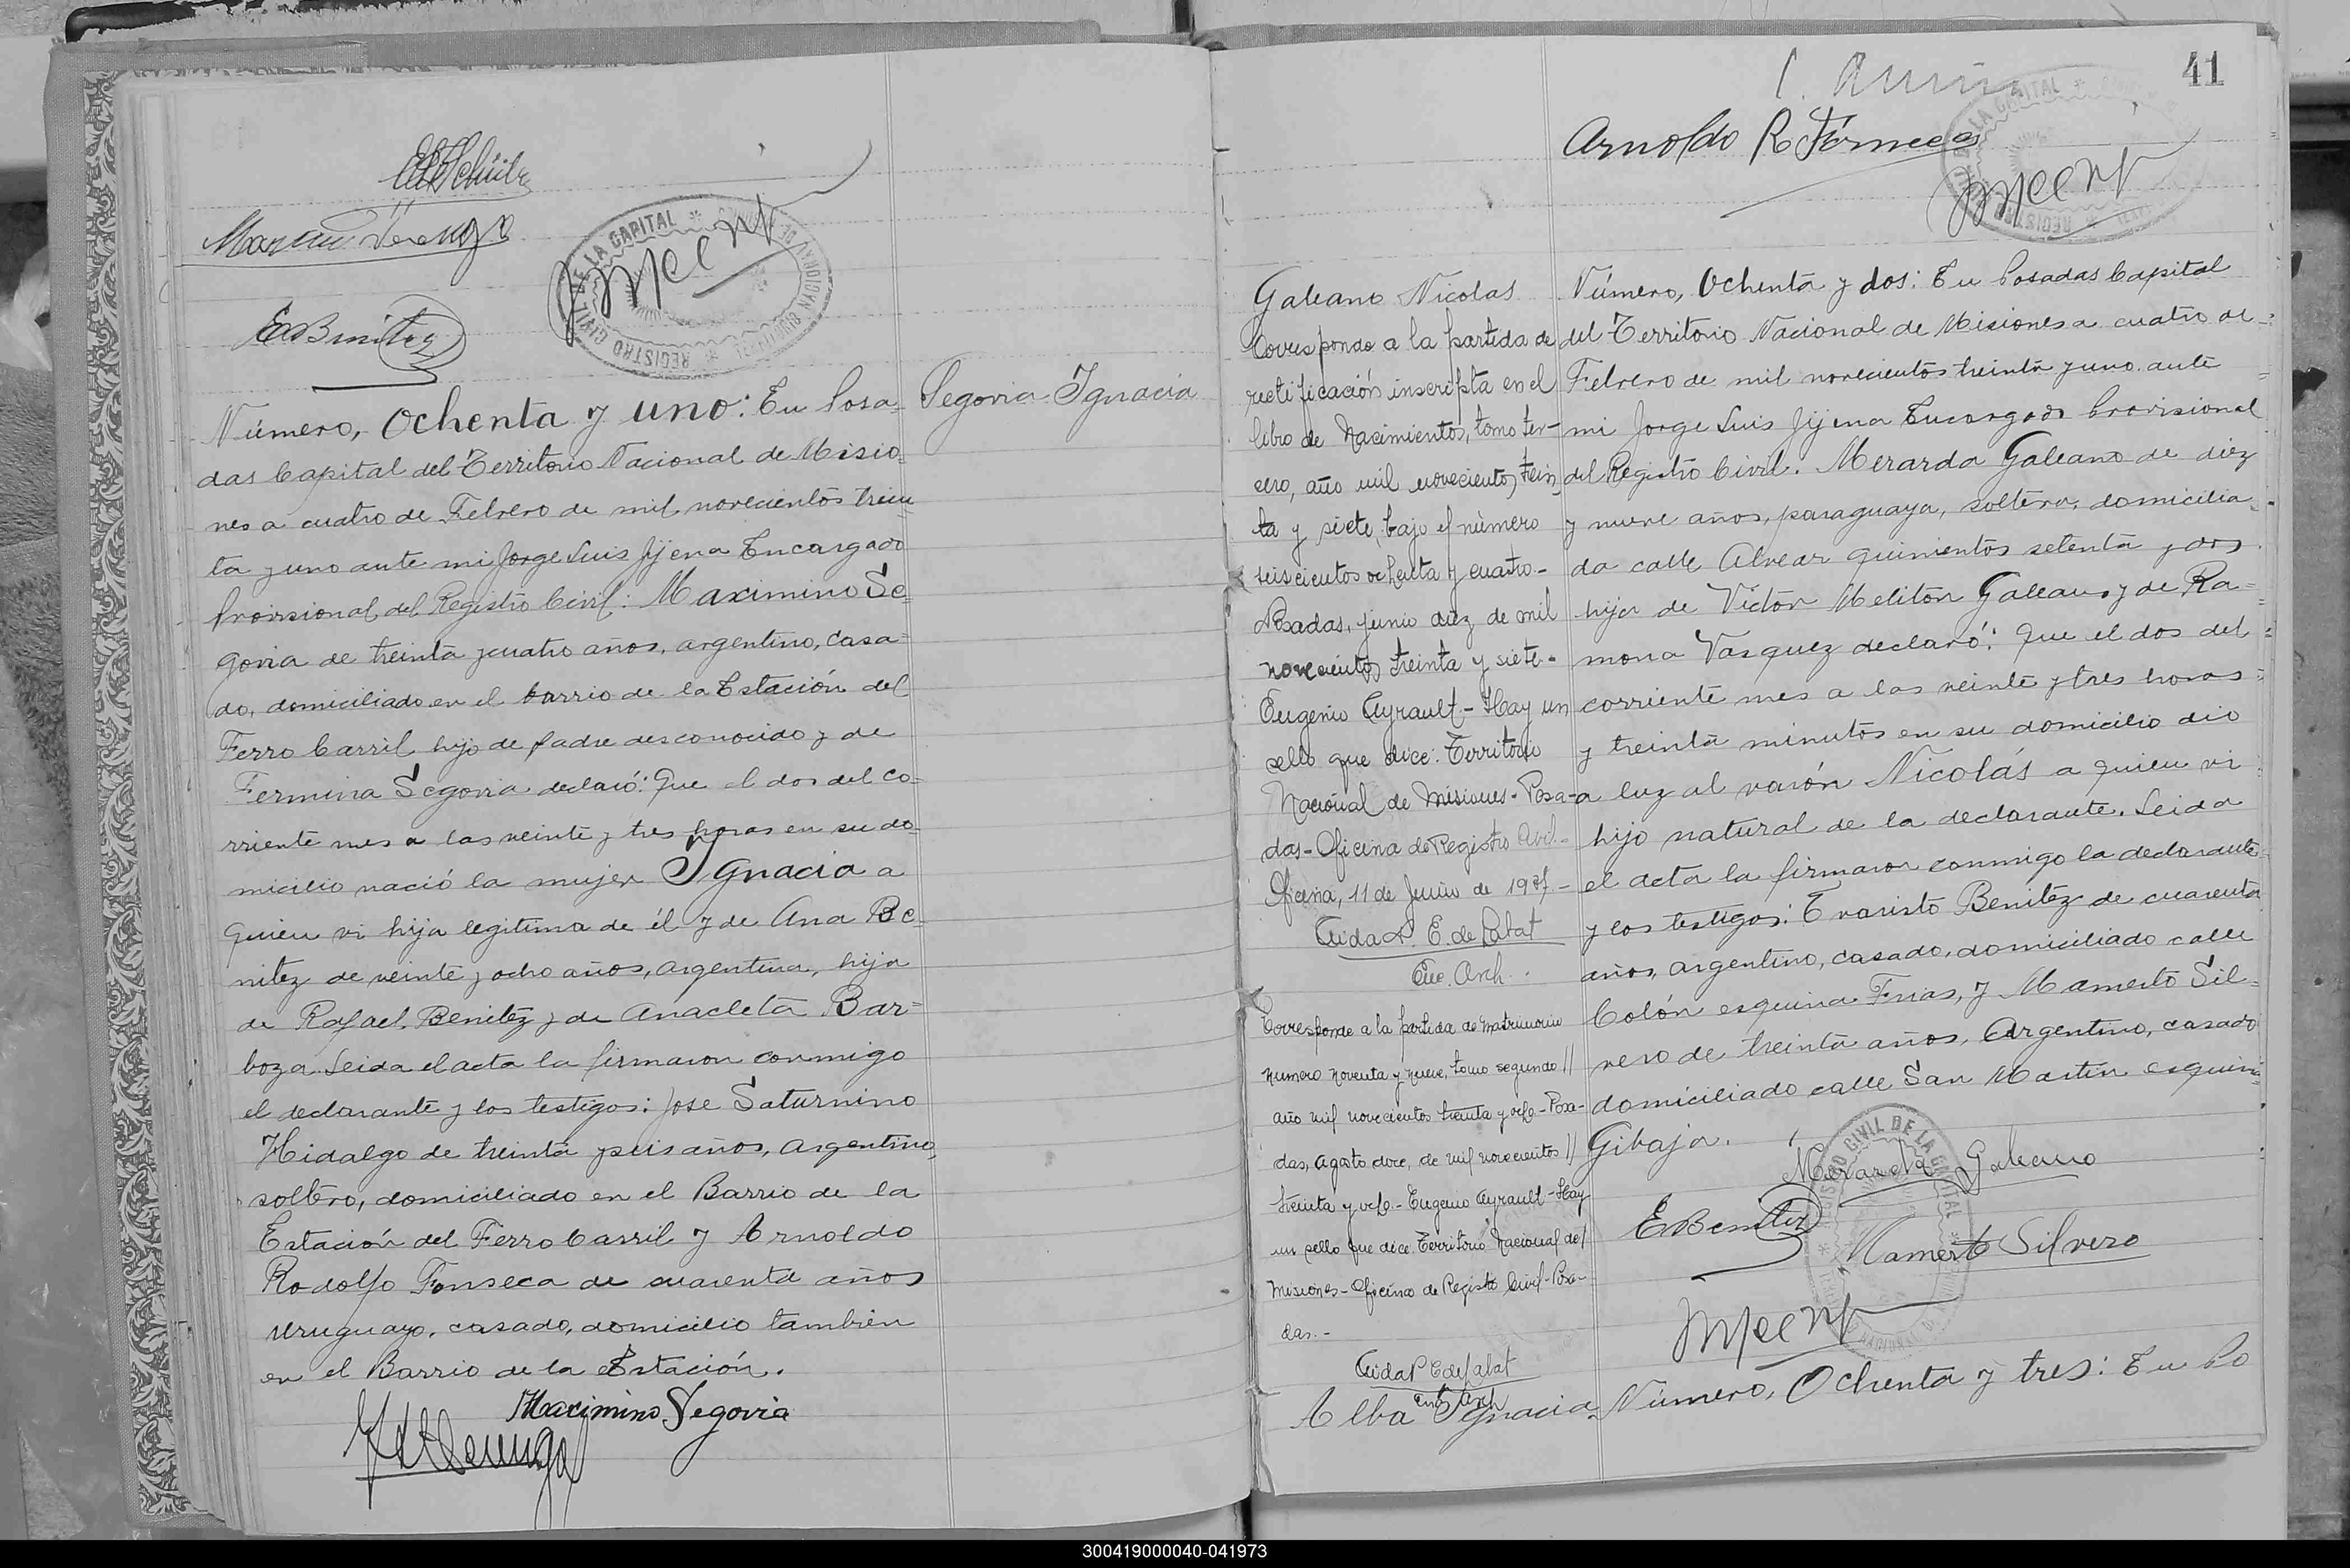 EBenitez
REGISTRO CIVIL DE LA CAPITAL
Segovia Ignacia
Número, Ochenta y uno: En Posa-
das Capital del Territorio Nacional de Misio-
nes a cuatro de Febrero de mil novecientos trein-
ta y uno ante mi Jorge Luis Jijena Encargado
Provisional del Registro Civil: Maximino Se-
govia de treinta y cuatro años, argentino, casa-
do, domiciliado en el barrio de la Estación del
Ferro Carril hijo de padre desconocido y de
Fermina Segovia declaró: Que el dos del co-
rriente mes a las veinte y tres horas en su do-
micilio nació la mujer Ignacia a
quien vi hija legitima de él y de Ana Be-
nitez de veinte y ocho años, argentina, hija
de Rafael Benitez y de Anacleta Bar-
boza. Leida el acta la firmaron conmigo
el declarante y los testigos: Jose Saturnino
Hidalgo de treinta y seis años, argentino,
soltero, domiciliado en el Barrio de la
Estación del Ferro Carril y Arnoldo
Rodolfo Fonseca de cuarenta años
uruguayo, casado, domicilio también
en el Barrio de la Estación.
Maximino Segovia
41
Arnoldo R
REGISTRO DE LA CAPITAL
Galeano Nicolas
Corresponde a la partida de
rectificación inscripta en el
libro de Nacimientos, tomo ter-
cero, año mil novecientos trein-
ta y siete, bajo el número
seiscientos ochenta y cuatro-
Posadas, junio diez de mil
novecientos treinta y siete-
Eugenio Ayrault - Hay un
sello que dice: Territorio
Nacional de Misiones - Posa-
das - Oficina de Registro Civil-
Oficina, 11 de Junio de 1937-
Enc. Arch.
Corresponde a la partida de matrimonio
numero noventa y nueve, tomo segundo //
año mil novecientos treinta y ocho - Posa-
das, agosto doce, de mil novecientos //
treinta y ocho - Eugenio Ayrault - Hay
un sello que dice: Territorio Nacional de
Misiones - Oficina de Registro Civil - Posa-
das.-
Enc. Arch
Número, Ochenta y dos: En Posadas Capital
del Territorio Nacional de Misiones a cuatro de
Febrero de mil novecientos treinta y uno ante
mi Jorge Luis Jijena Encargado Provisional
del Registro Civil. Merarda Galeano de diez
y nueve años, paraguaya, soltera, domicilia-
da calle Alvear quinientos setenta y dos
hija de Victor Meliton Galeano y de Ra-
mona Vasquez declaró: Que el dos del
corriente mes a las veinte y tres horas
y treinta minutos en su domicilio dio
a luz al varón Nicolás a quien vi
hijo natural de la declarante. Leida
el acta la firmaron conmigo la declarante
y los testigos: Evaristo Benitez de cuarenta
años, argentino, casado, domiciliado calle
Colón esquina Frias, y Mamerto Sil-
vero de treinta años, Argentino, casado
domiciliado calle San Martin esquina
Gibaja.
Merarda Galeano
EBenitez
Mamerto Silvero
REGISTRO CIVIL DE LA CAPITAL
Alba Ignacia
Número, Ochenta y tres: En Po
300419000040-041973